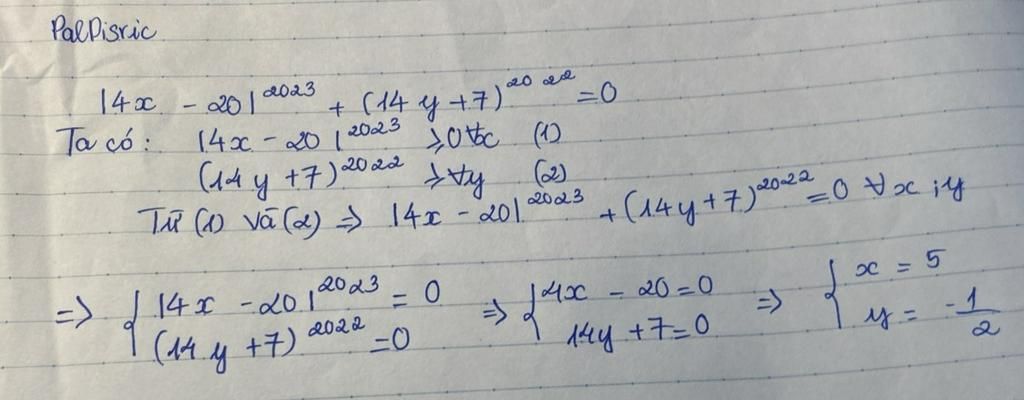 PalDisric
|4x - 20|^2023 + (14y + 7)^2022 = 0
Ta có: |4x - 20|^2023 ⩾ 0 ∀x (1)
(14y + 7)^2022 ⩾ ∀y (2)
Từ (1) và (2) => |4x - 20|^2023 + (14y + 7)^2022 = 0 ∀x ; y
=> { |4x - 20|^2023 = 0 => { 4x - 20 = 0 => { x = 5
(14y + 7)^2022 = 0 14y + 7 = 0 y = -1/2